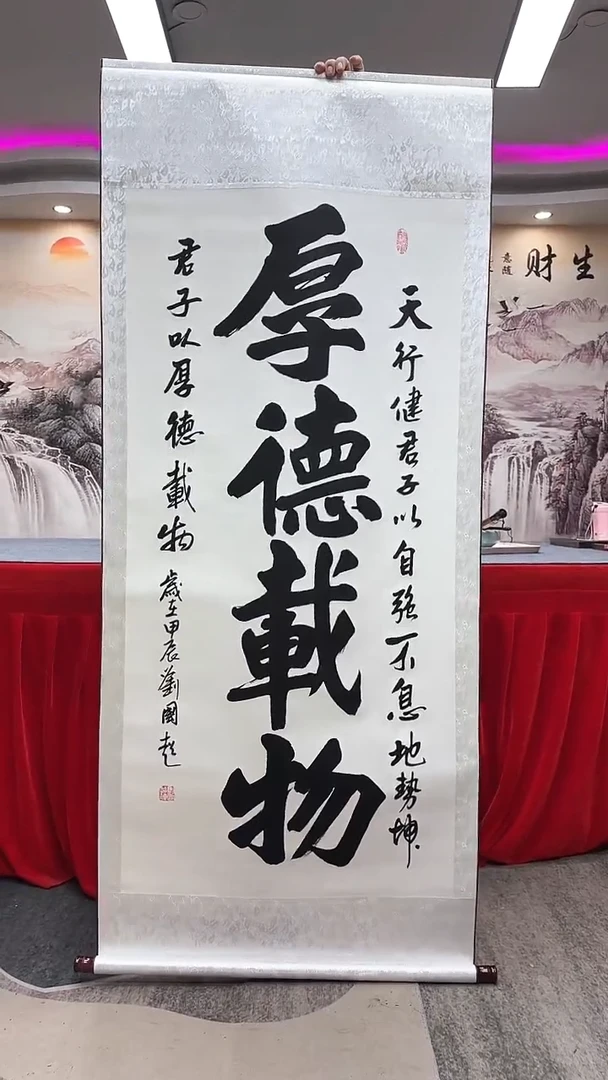 厚德載物
天行健君子以自强不息地勢坤
君子以厚德載物
歲在甲辰劉國超
生財
意随